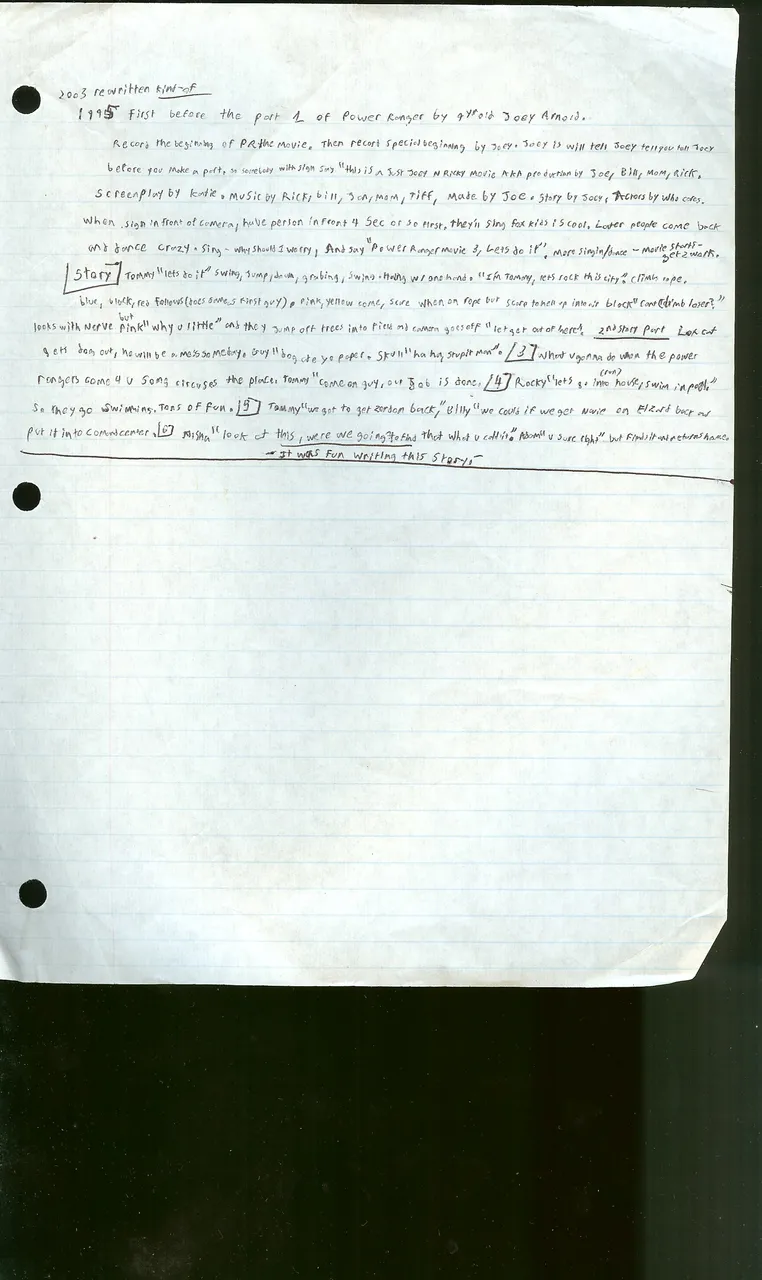 2003 rewritten kind-of
1995 First before the part 1 of Power Ranger by Joey Arnold.
Record the beginning of PR the Movie. Then record special beginning by Joey. Joey is will tell Joey tell you tell Joey
before you make a part, so somebody with sign say "this is a Just Joey N Ricky Movie AKA production by Joe, Bill, Mom, Rick.
Screenplay by Katie. Music by Rick, bill, Jon, mom, Tiff, Made by Joe. Story by Joey, Actors by who cares.
When sign in front of camera, have person in front 4 sec or so first, they'll sing fox kids is cool. Later people come back
and dance crazy. Sing - why should I worry, And say "Power Ranger movie 3, Lets do it", more singin/dance - movie starts - get 2 work.
Story Tommy "lets do it" swing, jump, down, grabing, swing w/ one hand. "I'm Tommy, lets rock this city" climb rope.
blue, black, red follows (does same as first guy), pink, yellow come, scare when on rope but black "cant climb loser?"
looks with nerve but pink "why u little" and they jump off trees into field and camera goes off "let get out of here!. 2nd story part
gets dog out, he will be a mess someday. Guy "dog ate yo paper. Skull "ha ha, stupit man". [3] What u gonna do when the power
rangers come 4 u song circuses the place. Tommy "come on guy, our job is done. [4] Rocky "lets go (run) into house, swim in pool"
So they go swimming. Tons of fun. [5] Tommy "we got to get zordon back," Billy "we could if we get Movie on Elzard back and
put it into Comandcenter. [6] Aisha "look at this, were we going to find that what u call it." Adam "u sure right" but finds it and returns home.
- It was fun writing this story. -